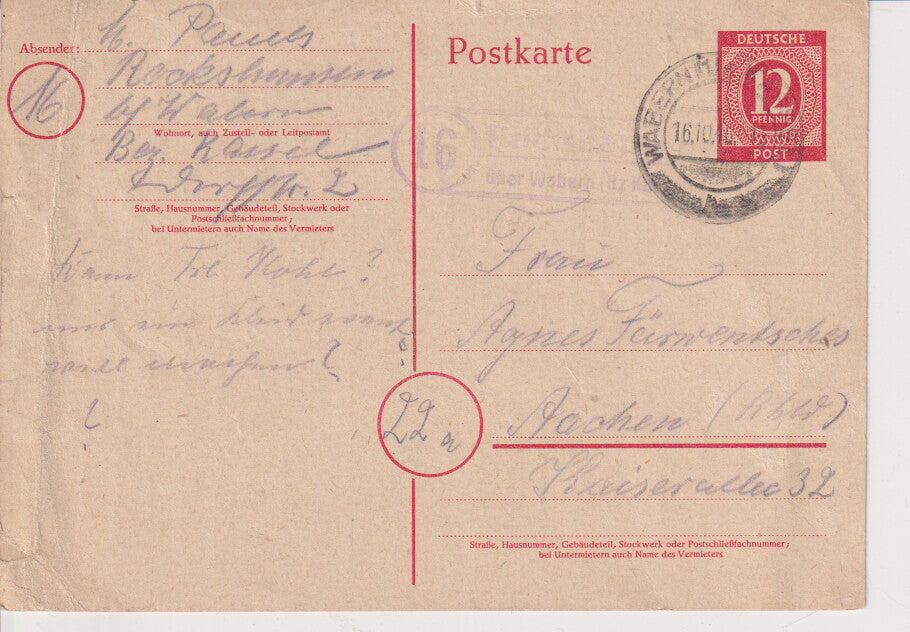 Absender:
Rockshausen
b/ Wabern
Wohnort, auch Zustell- oder Leitpostamt
Bez. Kassel
Dorfstr. 2
Straße, Hausnummer, Gebäudeteil, Stockwerk oder
Postschließfachnummer;
bei Untermietern auch Name des Vermieters
16
Kann Frl Kohl ?
mir ein Kleid
will machen?
?
Postkarte
DEUTSCHE
12
PFENNIG
POST
WABERN
16.10.
16
über Wabern (Bz
Frau
Agnes
Aachen (Rhld)
22a
Kaiserallee 32
Straße, Hausnummer, Gebäudeteil, Stockwerk oder Postschließfachnummer;
bei Untermietern auch Name des Vermieters